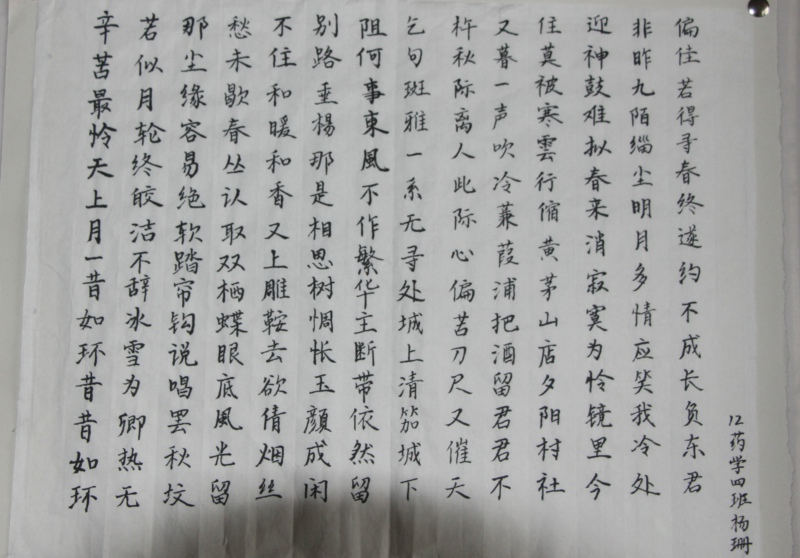 辛苦最怜天上月一昔如环昔昔如环
若似月轮终皎洁不辞冰雪为卿热无
那尘缘容易绝软踏帘钩说唱罢秋坟
愁未歇春丛认取双栖蝶眼底風光留
不住和暖和香又上雕鞍去欲倩烟丝
别路垂楊那是相思树惆怅玉顔成闲
阻何事東風不作繁华主断带依然留
乞句斑雅一系无寻处城上清笳城下
杵秋际离人此际心偏苦刀尺又催天
又暮一声吹冷蒹葭浦把酒留君君不
住莫被寒雲行缩黄茅山店夕阳村社
迎神鼓难拟春来消寂寞为怜镜里今
非昨九陌缁尘明月多情应笑我冷处
偏住若得寻春终遂约不成长负东君
12药学四班杨珊